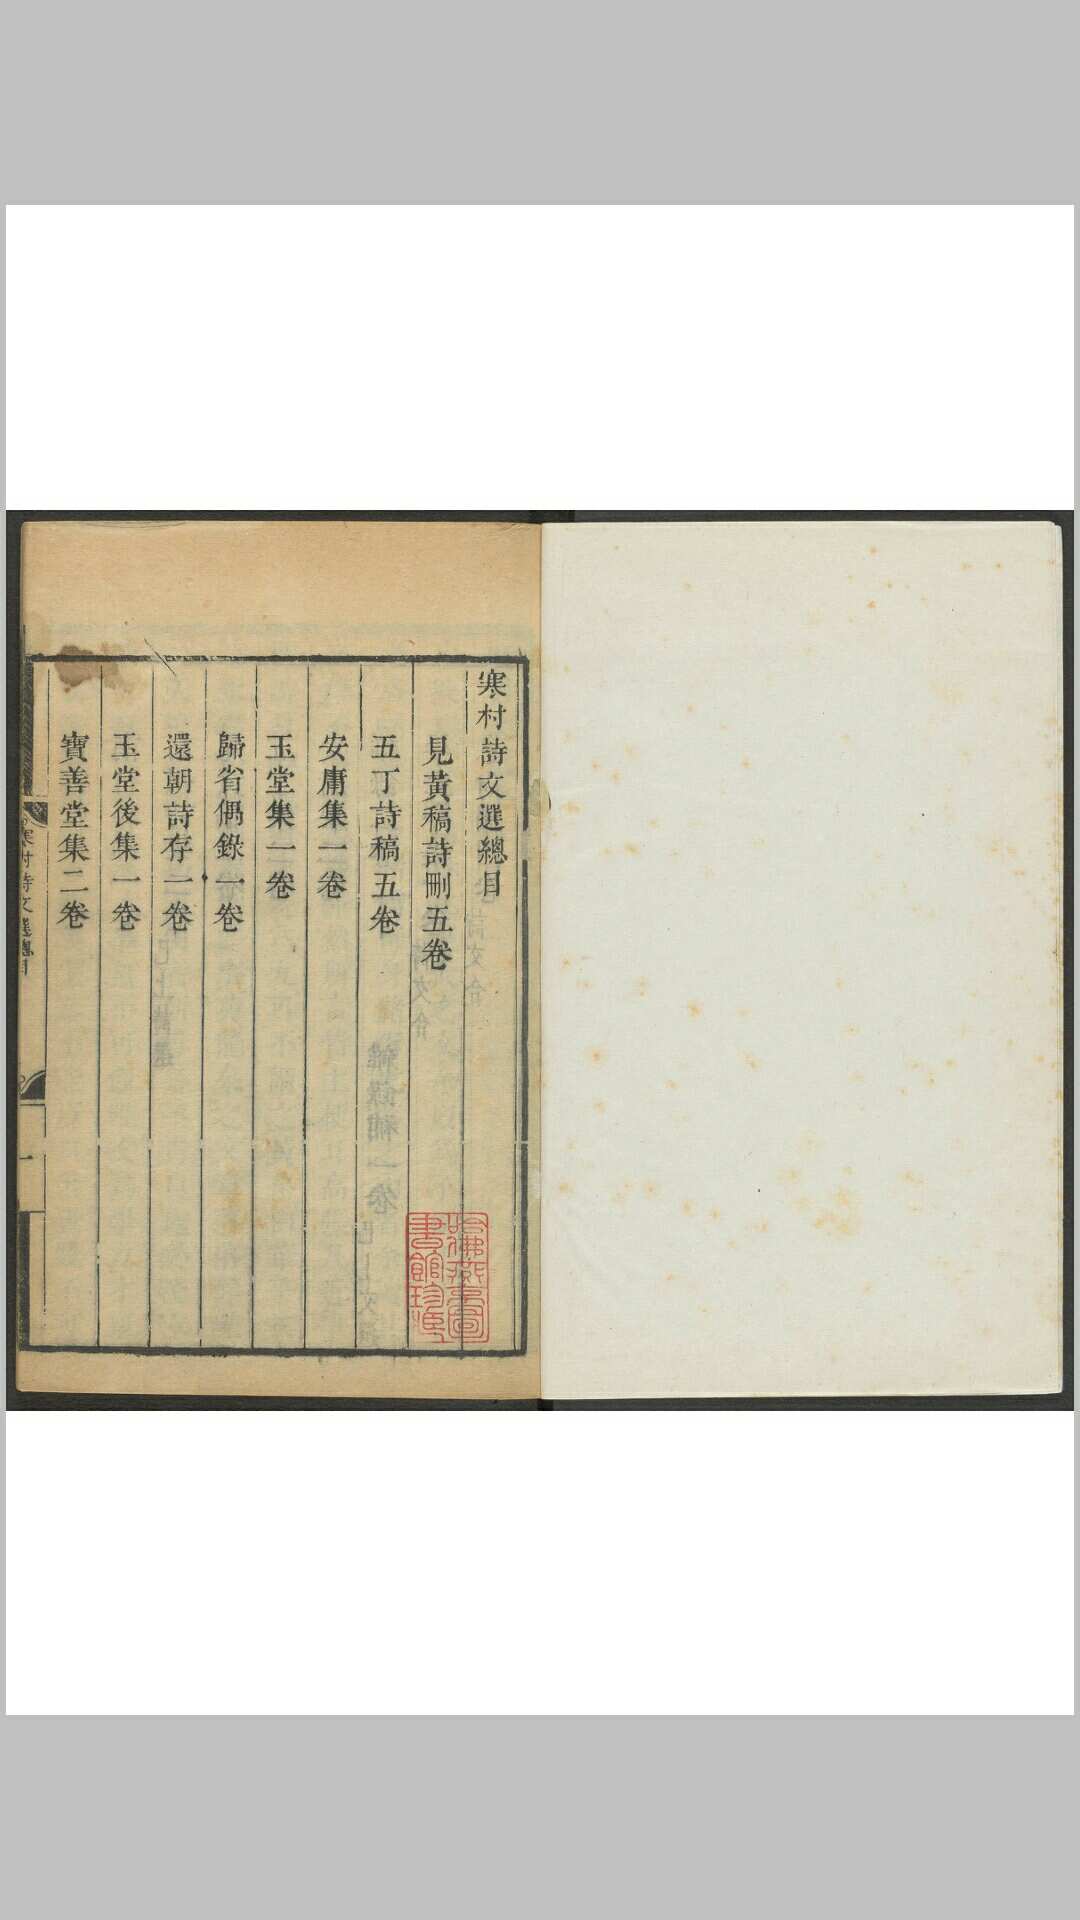 寒村詩文選總目
見黃稿詩刪五卷
五丁詩稿五卷
安庸集一卷
玉堂集一卷
歸省偶錄一卷
還朝詩存一卷
玉堂後集一卷
寶善堂集二卷
寒村詩文選總目
一
哈佛燕京圖
書館珍藏